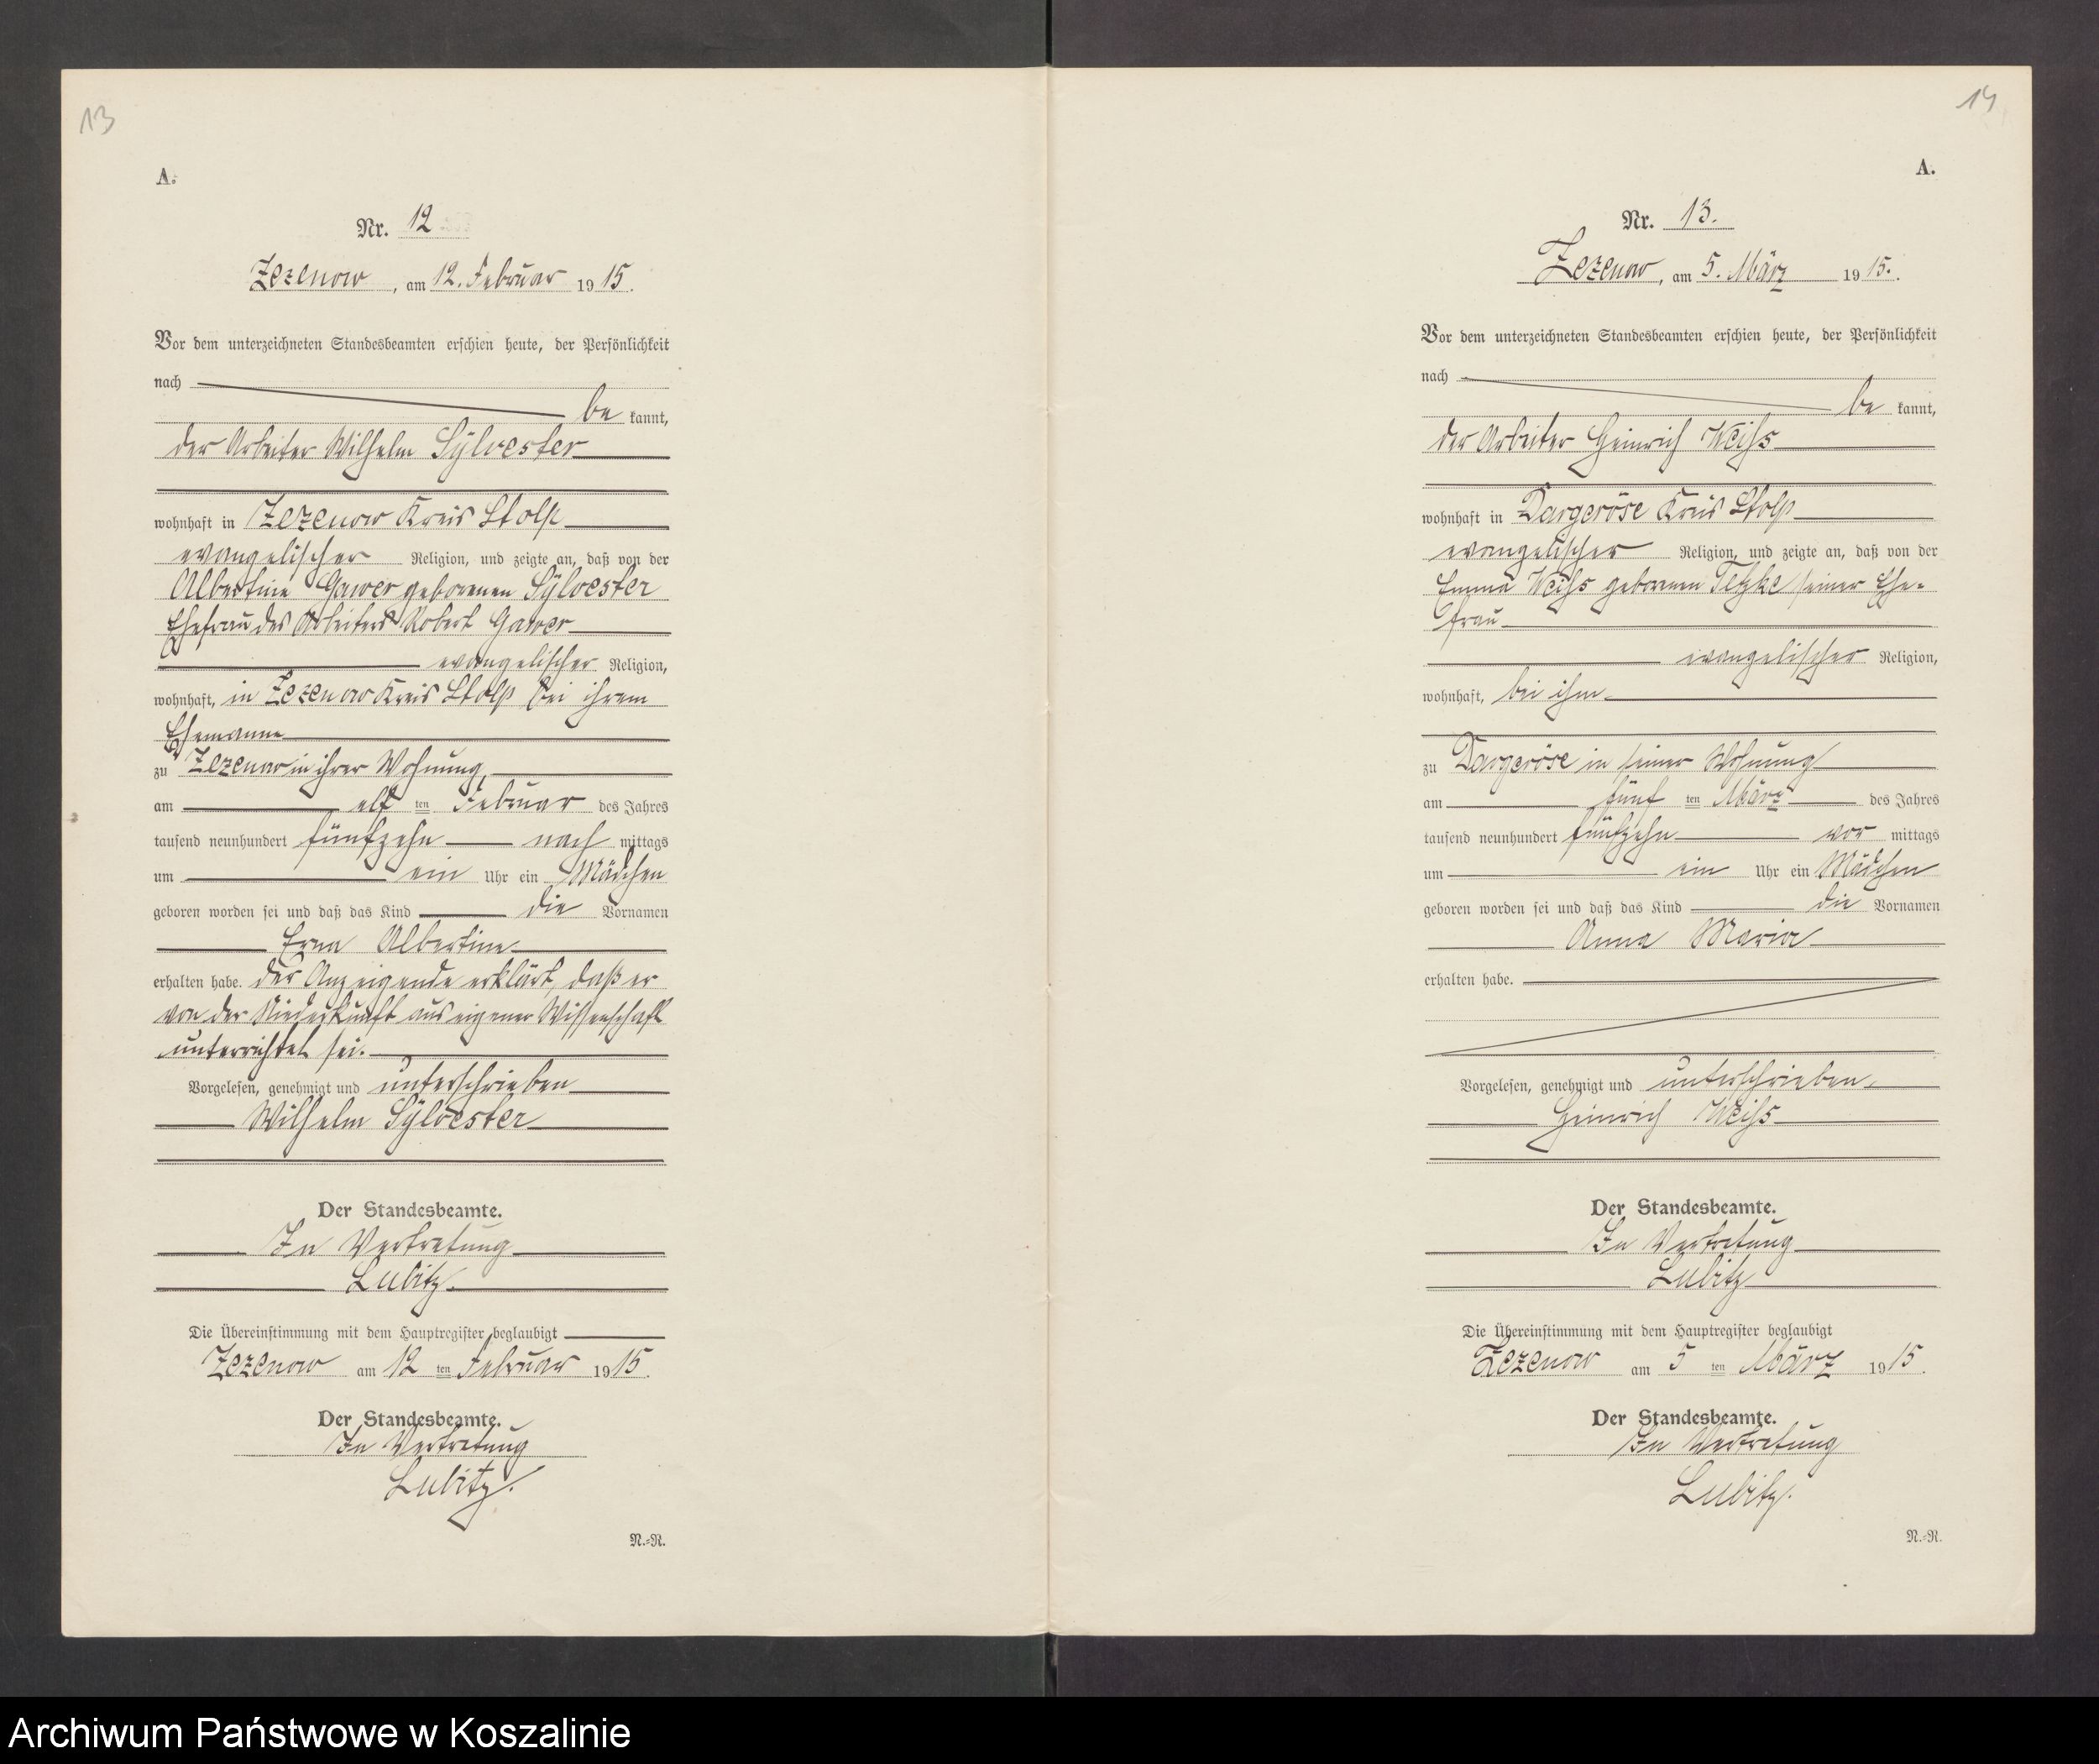 13
A.
Nr. 12
Zezenow, am 12. Februar 1915.
Vor dem unterzeichneten Standesbeamten erschien heute, der Persönlichkeit
nach
be kannt,
der Arbeiter Wilhelm Sÿlvester
wohnhaft in Zezenow Kreis Stolp
evangelischer Religion, und zeigte an, daß von der
Albertine Gawer geborenen Sÿlvester
Ehefrau des Arbeiters Robert Gawer
evangelischer Religion,
wohnhaft, in Zezenow Kreis Stolp bei ihrem
Ehemanne
zu Zezenow in ihrer Wohnung,
am elf ten Februar des Jahres
tausend neunhundert fünfzehn nach mittags
um ein Uhr ein Mädchen
geboren worden sei und daß das Kind die Vornamen
Erna Albertine
erhalten habe. Der Anzeigende erklärt, daß er
von der Niederkunft aus eigener Wissenschaft
unterrichtet sei.
Vorgelesen, genehmigt und unterschrieben
Wilhelm Sÿlvester
Der Standesbeamte.
In Vertretung
Lubitz.
Die Übereinstimmung mit dem Hauptregister beglaubigt
Zezenow am 12 ten Februar 1915.
Der Standesbeamte.
In Vertretung
Lubitz.
N.=R.
14
A.
Nr. 13.
Zezenow, am 5. März 1915.
Vor dem unterzeichneten Standesbeamten erschien heute, der Persönlichkeit
nach
be kannt,
der Arbeiter Heinrich Weiſs
wohnhaft in Dargeröse Kreis Stolp
evangelischer Religion, und zeigte an, daß von der
Emma Weiſs geborenen Tetzke seiner Ehe-
frau
evangelischer Religion,
wohnhaft, bei ihm
zu Dargeröse in seiner Wohnung
am fünf ten März des Jahres
tausend neunhundert fünfzehn vor mittags
um ein Uhr ein Mädchen
geboren worden sei und daß das Kind die Vornamen
Anna Maria
erhalten habe.
Vorgelesen, genehmigt und unterschrieben.
Heinrich Weiſs
Der Standesbeamte.
In Vertretung
Lubitz
Die Übereinstimmung mit dem Hauptregister beglaubigt
Zezenow am 5 ten März 1915.
Der Standesbeamte.
In Vertretung
Lubitz.
N.=R.
Archiwum Państwowe w Koszalinie